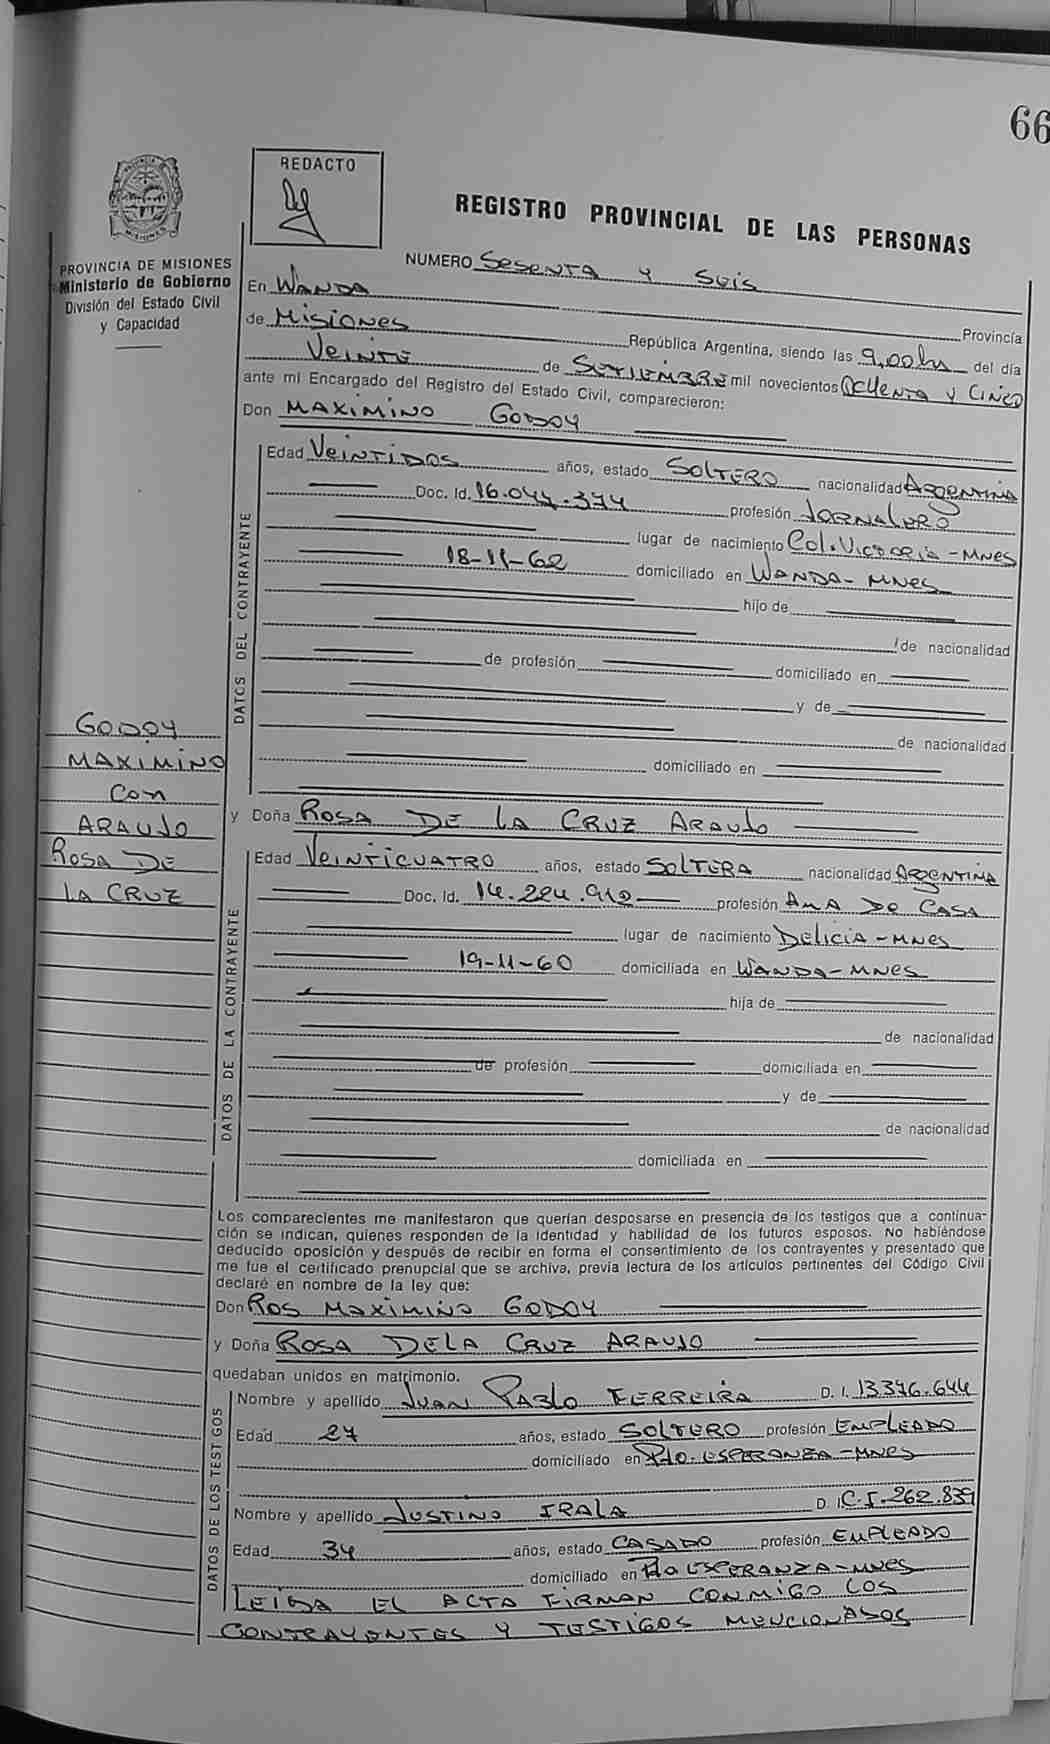 66
REDACTO
REGISTRO PROVINCIAL DE LAS PERSONAS
PROVINCIA DE MISIONES
Ministerio de Gobierno
División del Estado Civil
y Capacidad
NUMERO SESENTA Y SEIS
En WANDA Provincia
de MISIONES República Argentina, siendo las 9,00hs del día
VEINTE de SETIEMBRE mil novecientos OCHENTA Y CINCO
ante mi Encargado del Registro del Estado Civil, comparecieron:
Don MAXIMINO GODOY
DATOS DEL CONTRAYENTE
Edad VEINTIDOS años, estado SOLTERO nacionalidad ARGENTINA
Doc. Id. 16.044.374 profesión JORNALERO
lugar de nacimiento Col. VICTORIA-MNES
18-11-62 domiciliado en WANDA-MNES
hijo de
de nacionalidad
de profesión domiciliado en
y de
de nacionalidad
domiciliado en
GODOY
MAXIMINO
CON
ARAUJO
ROSA DE
LA CRUZ
y Doña ROSA DE LA CRUZ ARAUJO
DATOS DE LA CONTRAYENTE
Edad VEINTICUATRO años, estado SOLTERA nacionalidad ARGENTINA
Doc. Id. 14.224.912 profesión AMA DE CASA
lugar de nacimiento DELICIA-MNES
19-11-60 domiciliada en WANDA-MNES
hija de
de nacionalidad
de profesión domiciliada en
y de
de nacionalidad
domiciliada en
Los comparecientes me manifestaron que querían desposarse en presencia de los testigos que a continua-
ción se indican, quienes responden de la identidad y habilidad de los futuros esposos. No habiéndose
deducido oposición y después de recibir en forma el consentimiento de los contrayentes y presentado que
me fue el certificado prenupcial que se archiva, previa lectura de los artículos pertinentes del Código Civil
declaré en nombre de la ley que:
Don ROS MAXIMINO GODOY
y Doña ROSA DE LA CRUZ ARAUJO
quedaban unidos en matrimonio.
DATOS DE LOS TESTIGOS
Nombre y apellido JUAN PABLO FERREIRA D. I. 13376.644
Edad 27 años, estado SOLTERO profesión EMPLEADO
domiciliado en Pto. ESPERANZA-MNES
Nombre y apellido JUSTINO IRALA D. I C.I. 262.839
Edad 34 años, estado CASADO profesión EMPLEADO
domiciliado en Pto ESPERANZA-MNES
LEIDA EL ACTA FIRMAN CONMIGO LOS
CONTRAYENTES Y TESTIGOS MENCIONADOS